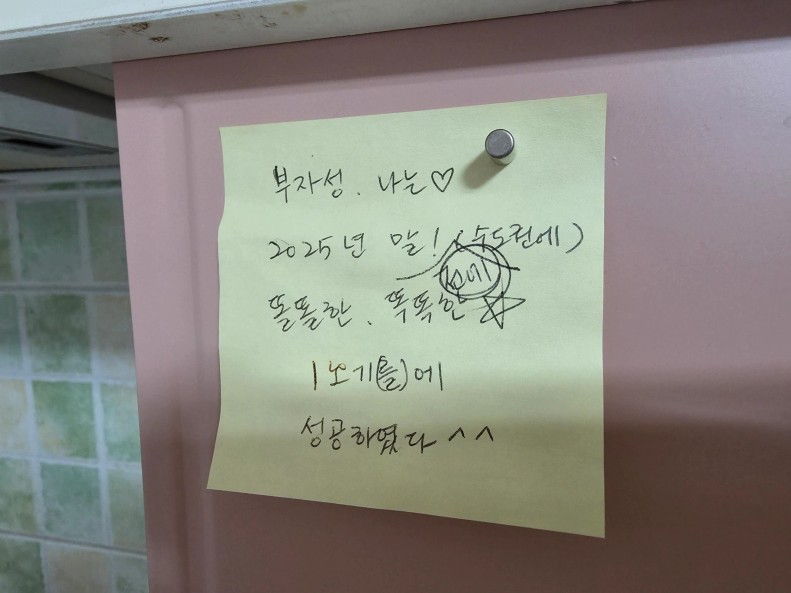 부자성. 나는♡
2025년 말! (수도권에)
전에
똘똘한. 똑똑한 ☆
1노기(를)에
성공하였다 ^^